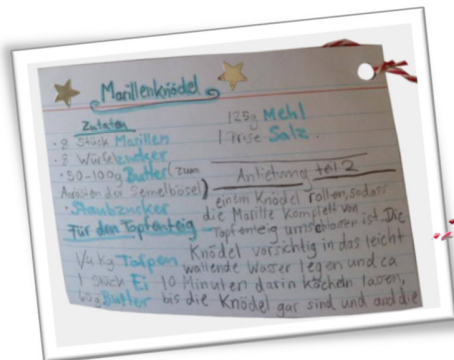 Marillenknödel
Zutaten
• 8 Stück Marillen
• 8 Würfelzucker
• 50-100g Butter (zum
Anrösten der Semelbösel)
• Staubzucker
Für den Topfenteig
1/4 kg Topfen
1 Stück Ei
60g Butter
125g Mehl
1 Prise Salz.
Anlietung teil 2
einem Knödel rollen, sodass
die Marille Komplett von
Topfenteig umschlossen ist. Die
Knödel vorsichtig in das leicht
wallende Wasser legen und ca
10 Minuten darin köcheln lassen,
bis die Knödel gar sind und auf die